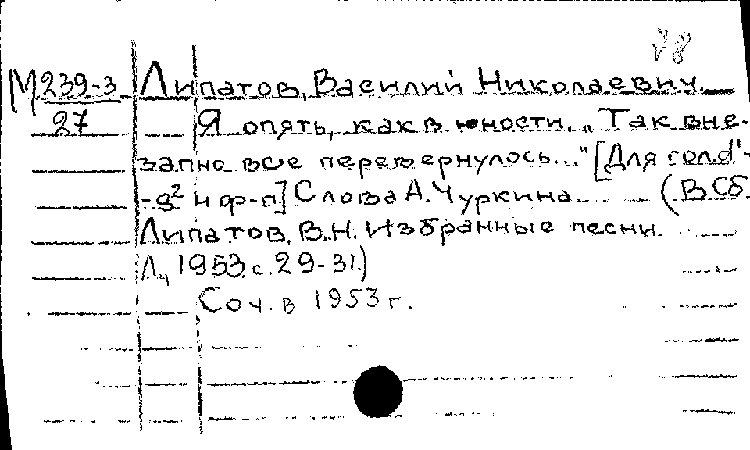 78
М 239-3 Липатов, Василий Николаевич.
27 Я опять, как в юности. „Так вне-
запно все перевернулось..." [Для сол. d'-
-g² и ф-п] Слова А. Чуркина. (В сб.
Липатов, В.Н. Избранные песни.
Л., 1953 с. 29-31.)
Соч. в 1953 г.